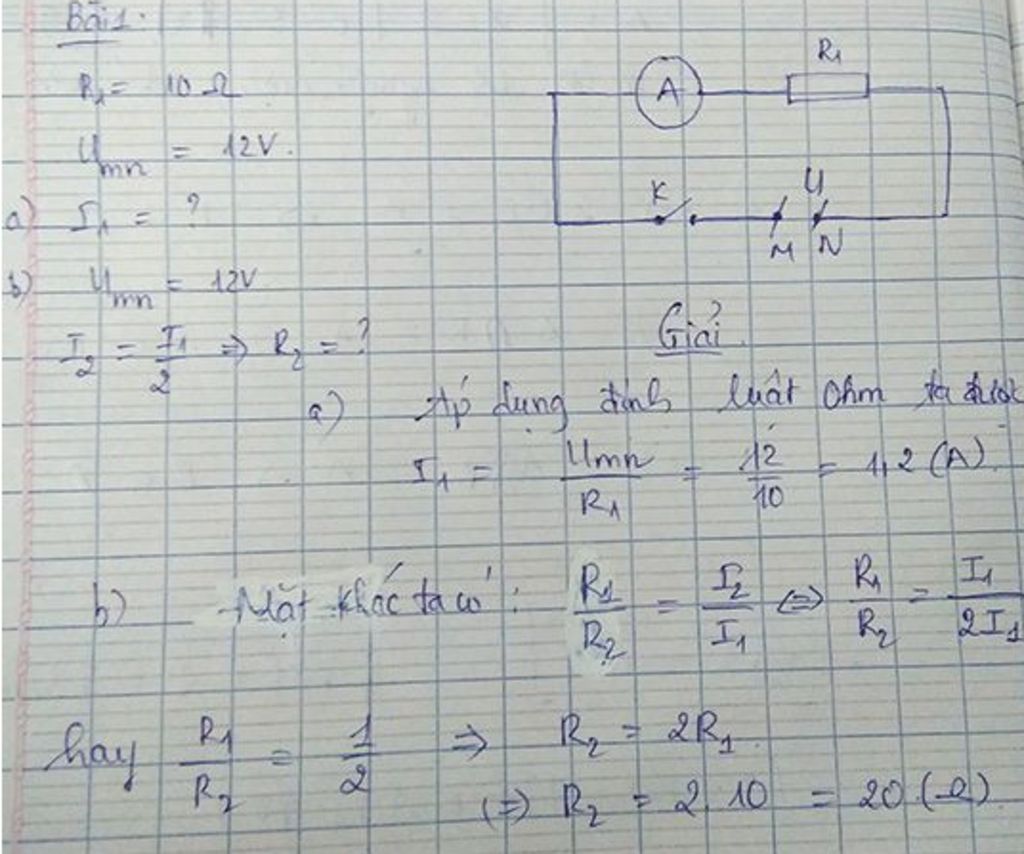 Bài 1.
R₁ = 10 Ω
Umn = 12V.
a) I₁ = ?
b) Umn = 12V
I₂ = I₁/2 ⇒ R₂ = ?
A R₁
K U
M N
Giải
a) Áp dụng định luật Ohm ta được
I₁ = Umn/R₁ = 12/10 = 1,2 (A)
b) Mặt khác ta có : R₁/R₂ = I₂/I₁ ⇔ R₁/R₂ = I₁/2I₁
hay R₁/R₂ = 1/2 ⇒ R₂ = 2R₁
(⇒) R₂ = 2.10 = 20 (Ω)